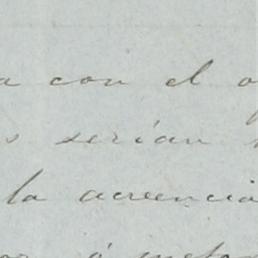 a con el
s serían
la acreencia
á